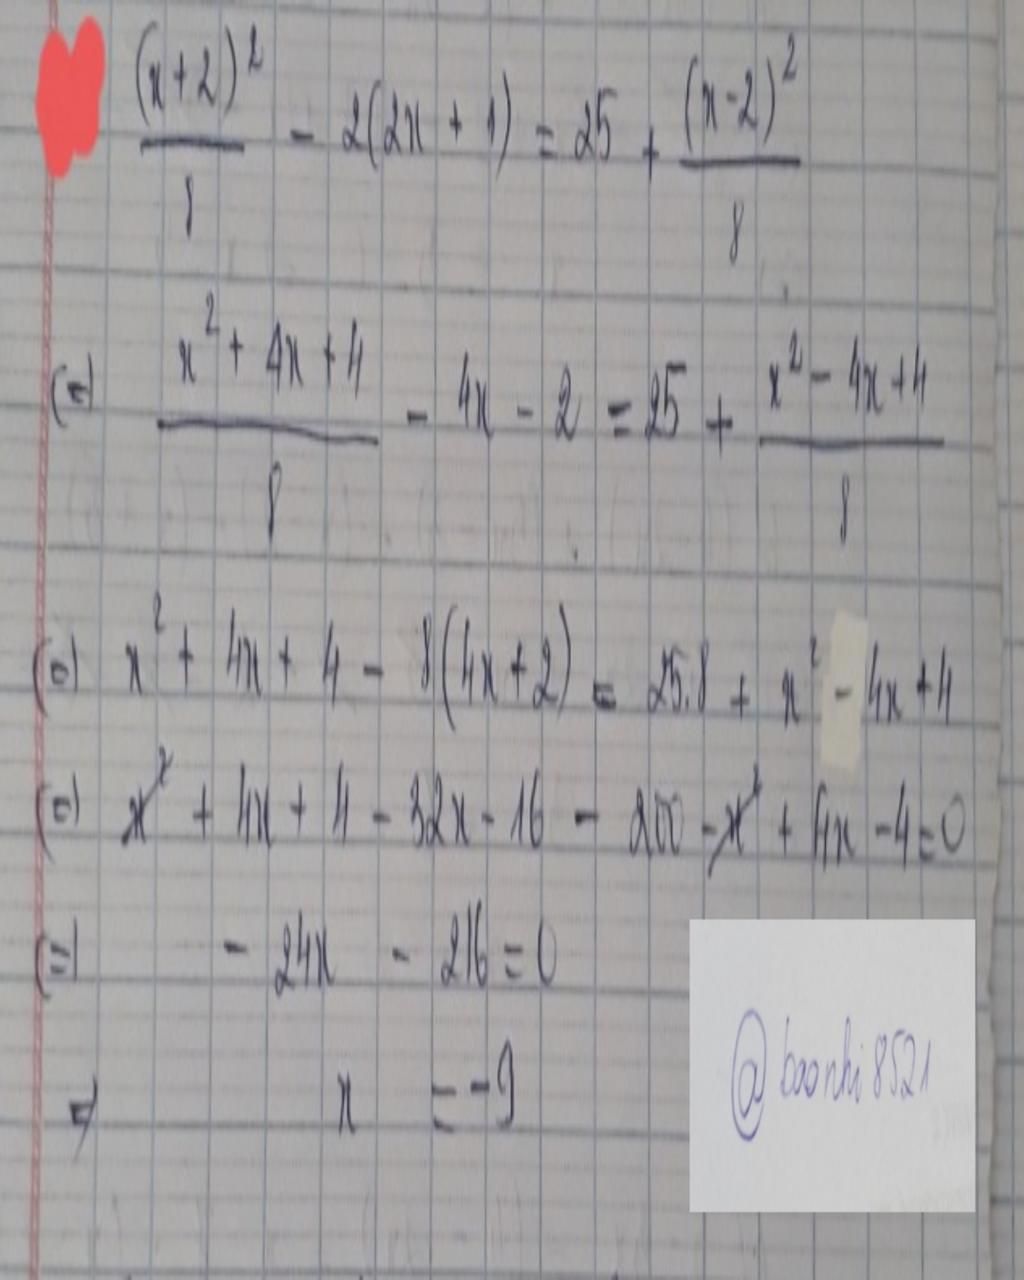 (x+2)²/8 - 2(2x + 1) = 25 + (x-2)²/8
(=) x² + 4x + 4/8 - 4x - 2 = 25 + x² - 4x + 4/8
(=) x² + 4x + 4 - 8(4x+2) = 25.8 + x² - 4x + 4
(=) x² + 4x + 4 - 32x - 16 - 200 - x² + 4x - 4 = 0
(=) - 24x - 216 = 0
=) x = -9
@baonhi8521